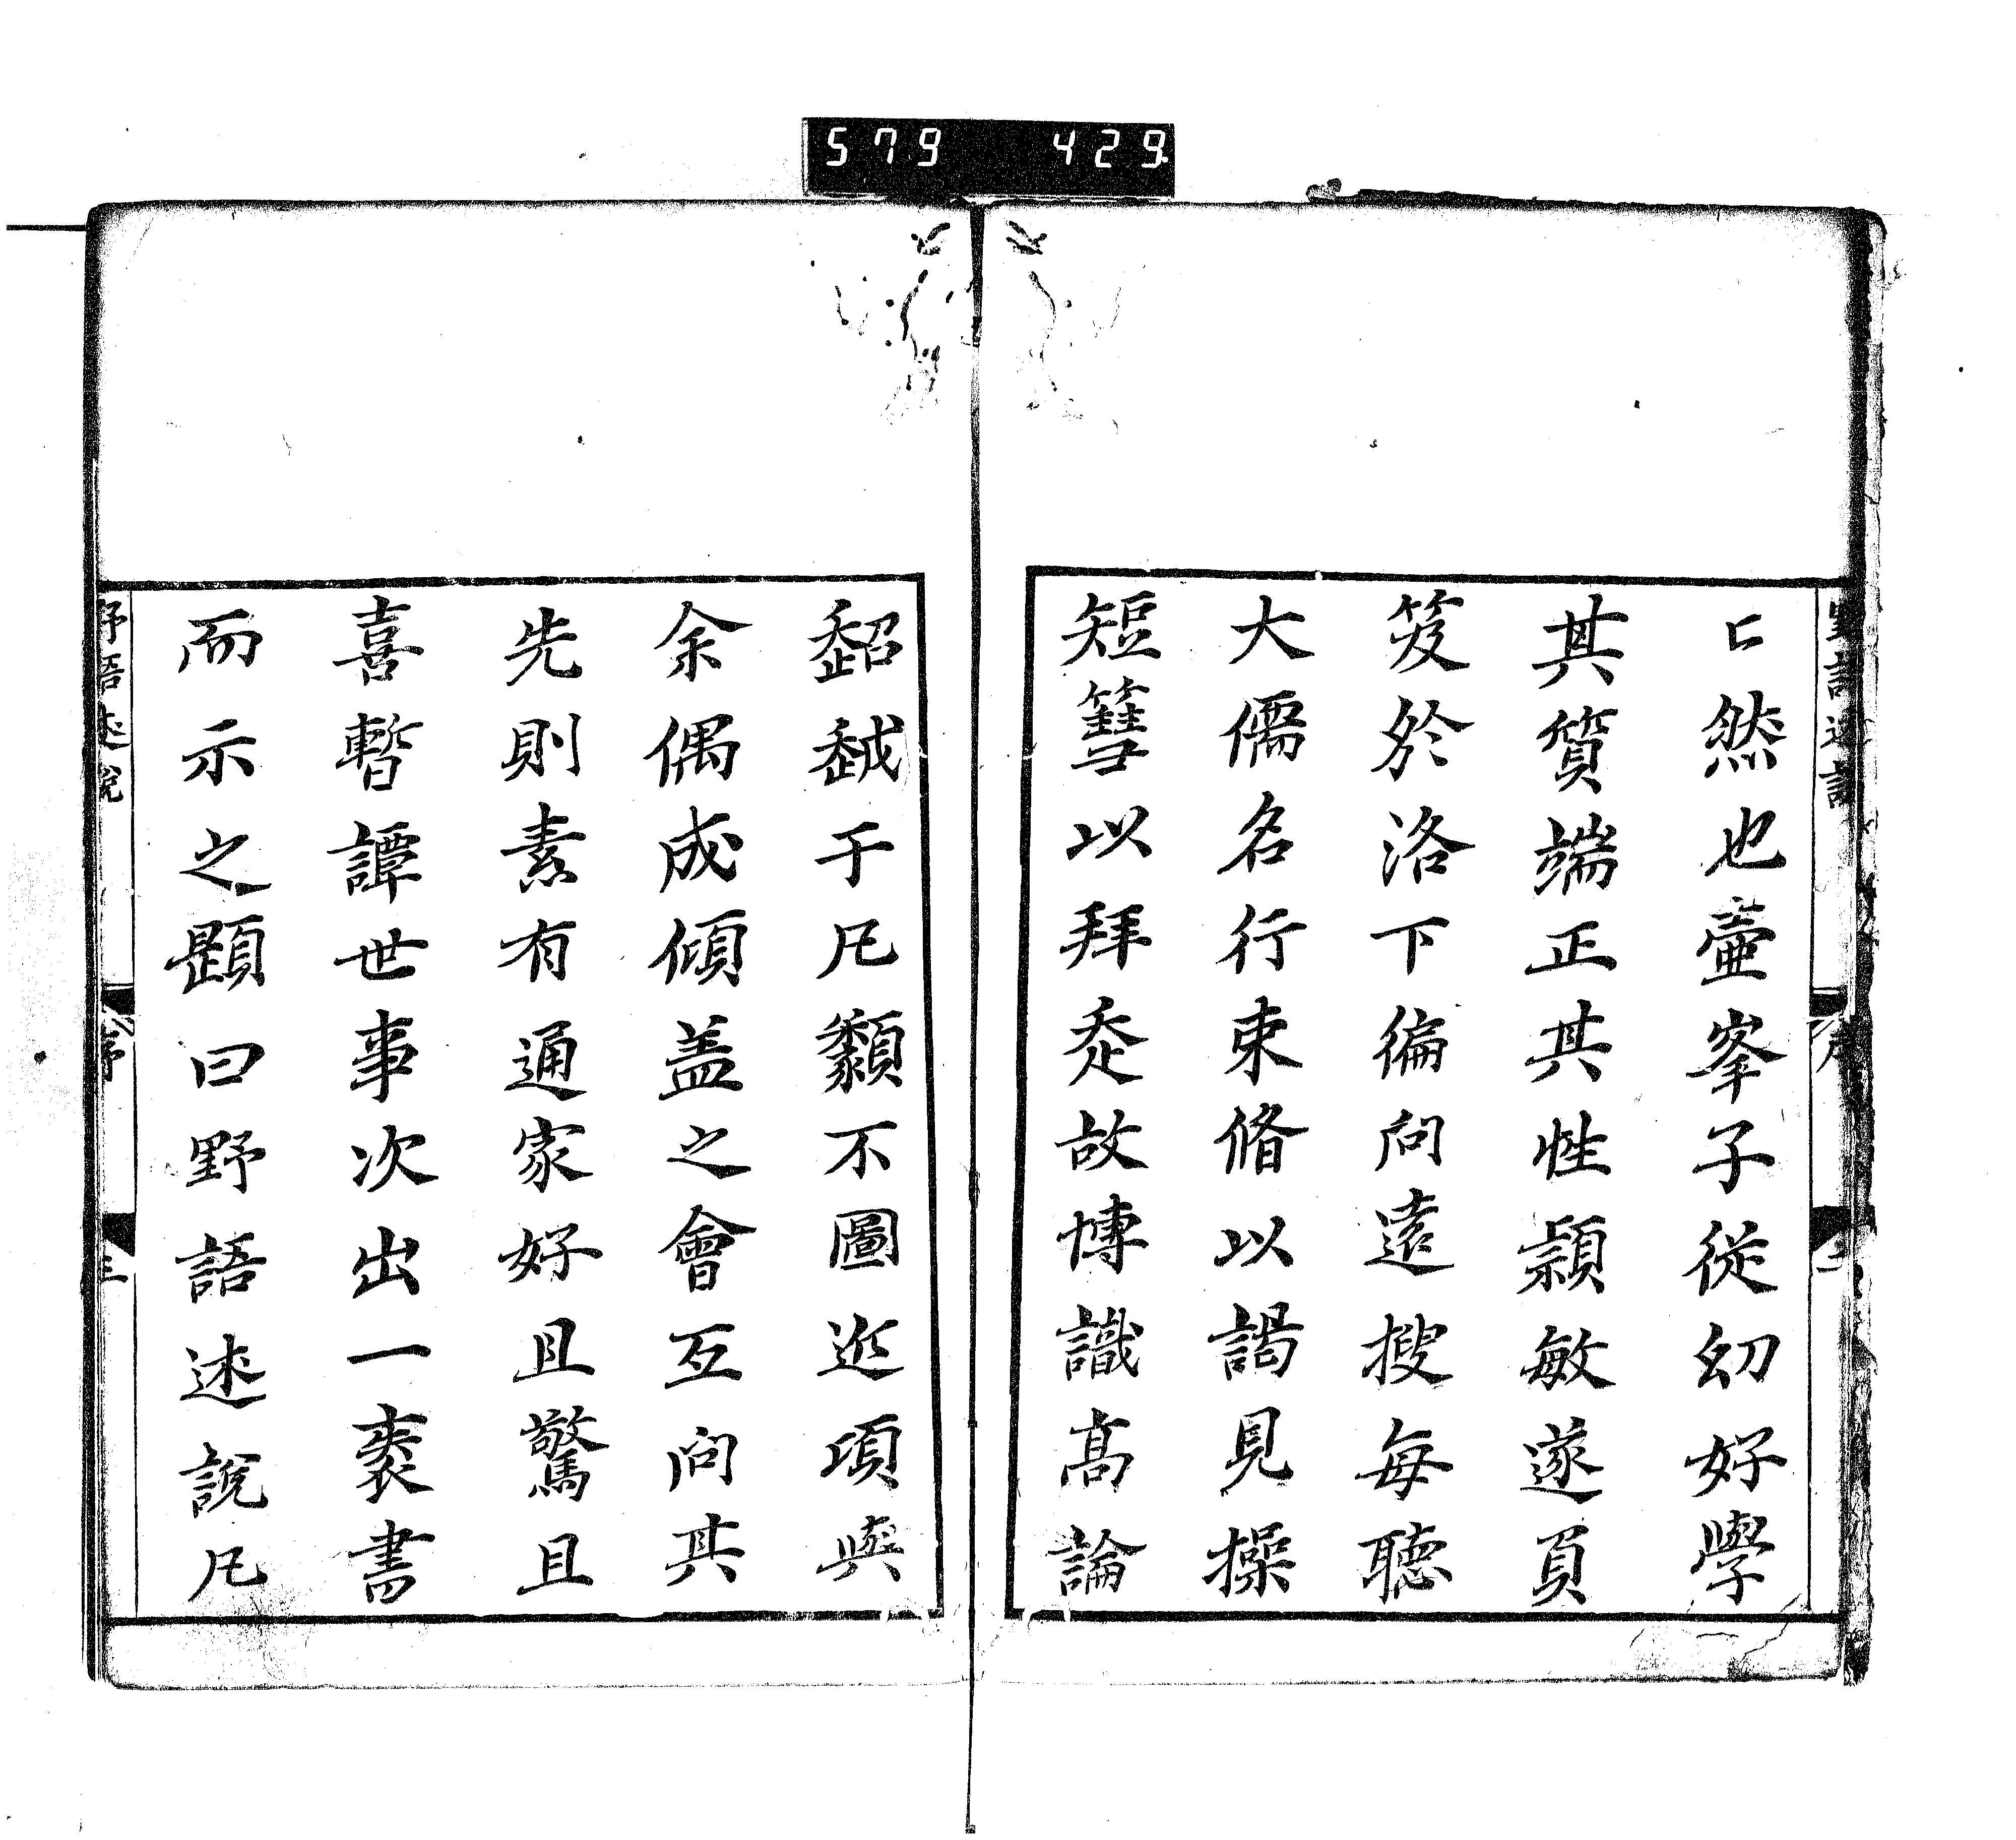 579 429
然也壷峯子從幼好學
其質端正其性穎敏遂負
笈於洛下徧問遠搜每聽
大儒名行束脩以謁見操
短篲以拜垄故博識高論
超越于凡類不圖近項與
余偶成傾盖之會互問其
先則素有通家好且驚且
喜暫譚世事次出一袠書
而示之題曰野語述說凡
野語述說
序
三